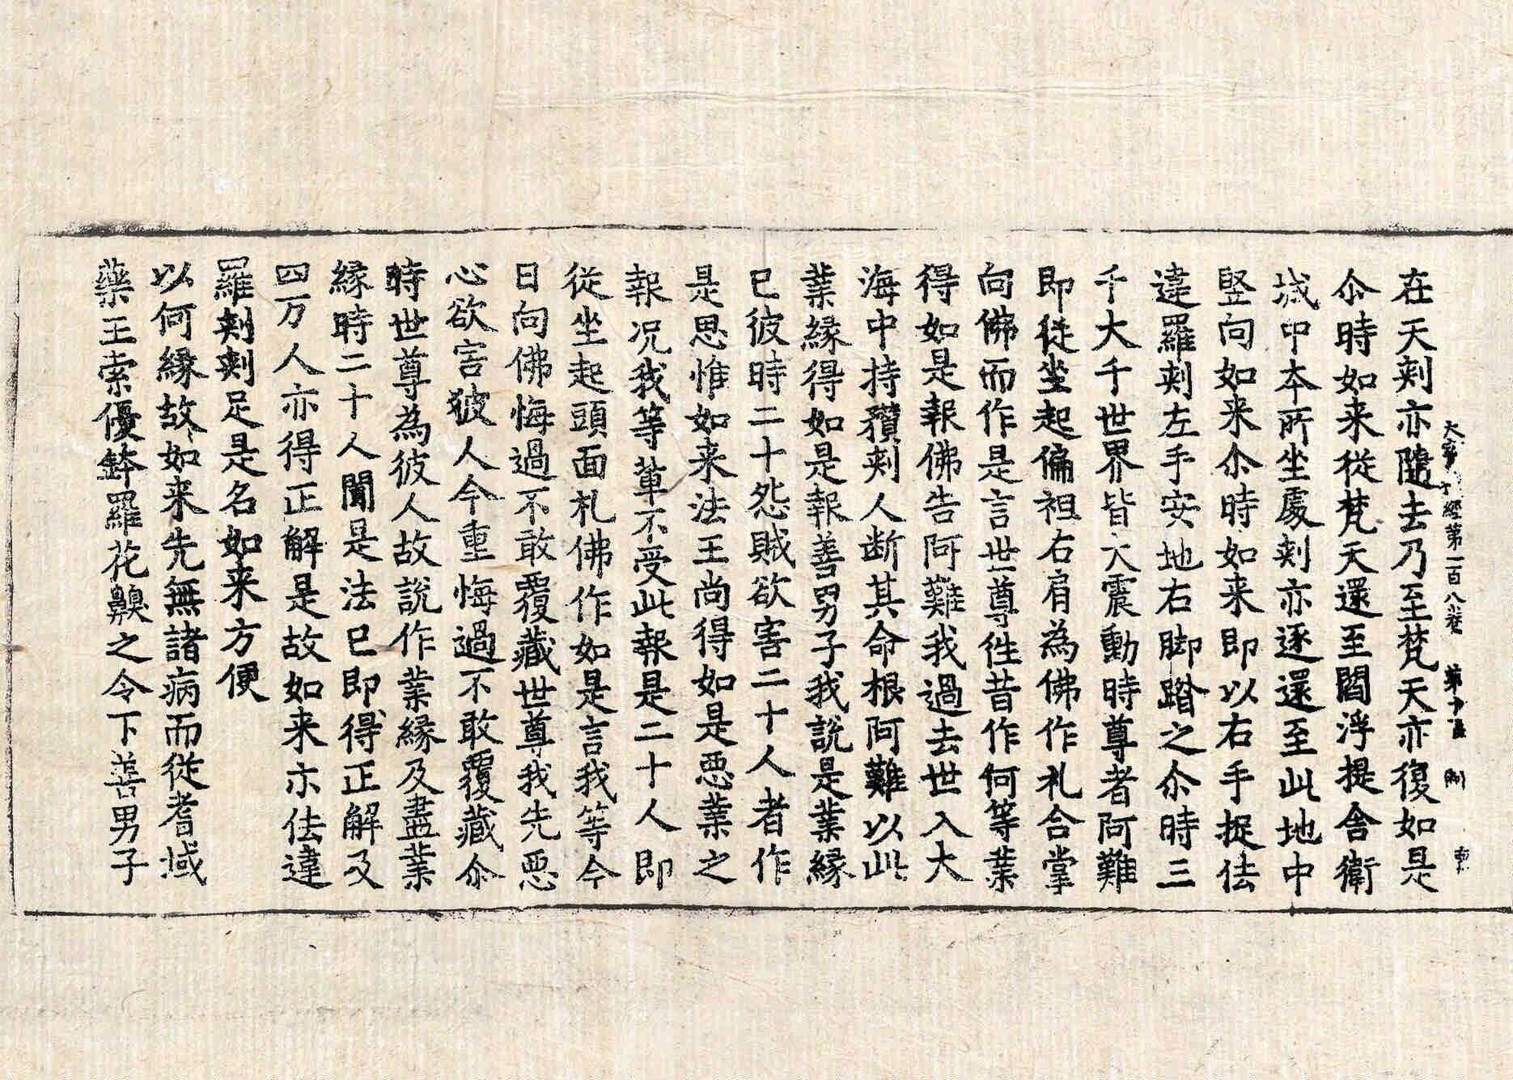 在天刾亦隨去乃至梵天亦復如是
尒時如来從梵天還至閻浮提舍衛
城中本所坐處刾亦逐還至此地中
竪向如来尒時如来即以右手捉佉
違羅刾左手安地右脚踏之尒時三
千大千世界皆大震動時尊者阿難
即從坐起偏袒右肩為佛作礼合掌
向佛而作是言世尊徃昔作何等業
得如是報佛告阿難我過去世入大
海中持矟刾人断其命根阿難以此
業緣得如是報善男子我說是業緣
已彼時二十怨賊欲害二十人者作
是思惟如来法王尚得如是悪業之
報况我等軰不受此報是二十人即
從坐起頭面礼佛作如是言我等今
日向佛悔過不敢覆藏世尊我先悪
心欲害彼人今重悔過不敢覆藏尒
時世尊為彼人故說作業緣及盡業
緣時二十人聞是法已即得正解及
四万人亦得正解是故如来亦佉違
羅刾刾足是名如来方便
以何緣故如来先無諸病而從耆域
藥王索優鉢羅花齅之令下善男子
經第一百八卷